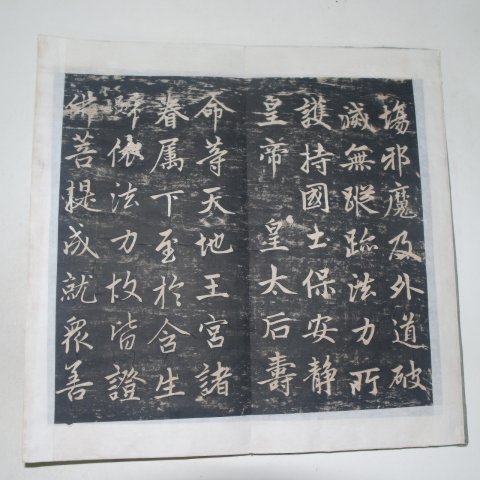 塲邪魔及外道破
滅無蹤跡法力所
護持國土保安靜
皇帝 皇太后壽
命等天地王宮諸
眷属下至於含生
歸依法力故皆證
佛菩提成就衆善